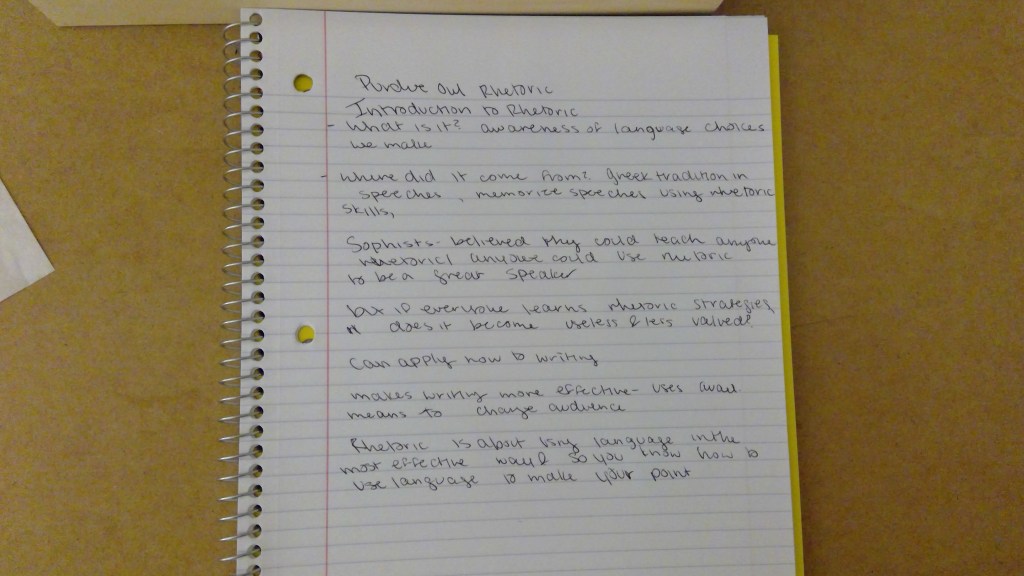 Purdue Owl Rhetoric
Introduction to Rhetoric
- What is it? awareness of language choices
we make
- Where did it come from? Greek tradition in
speeches, memorize speeches using rhetoric
skills,
Sophists- believed they could teach anyone
rhetoric | anyone could use rhetoric
to be a great speaker
but if everyone learns rhetoric strategies,
does it become useless & less valued?
Can apply now to writing
makes writing more effective- uses avail
means to change audience
Rhetoric is about using language in the
most effective way & so you know how to
use language to make your point